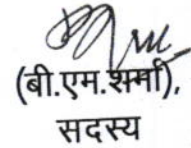 (बी.एम.शर्मा),
सदस्य